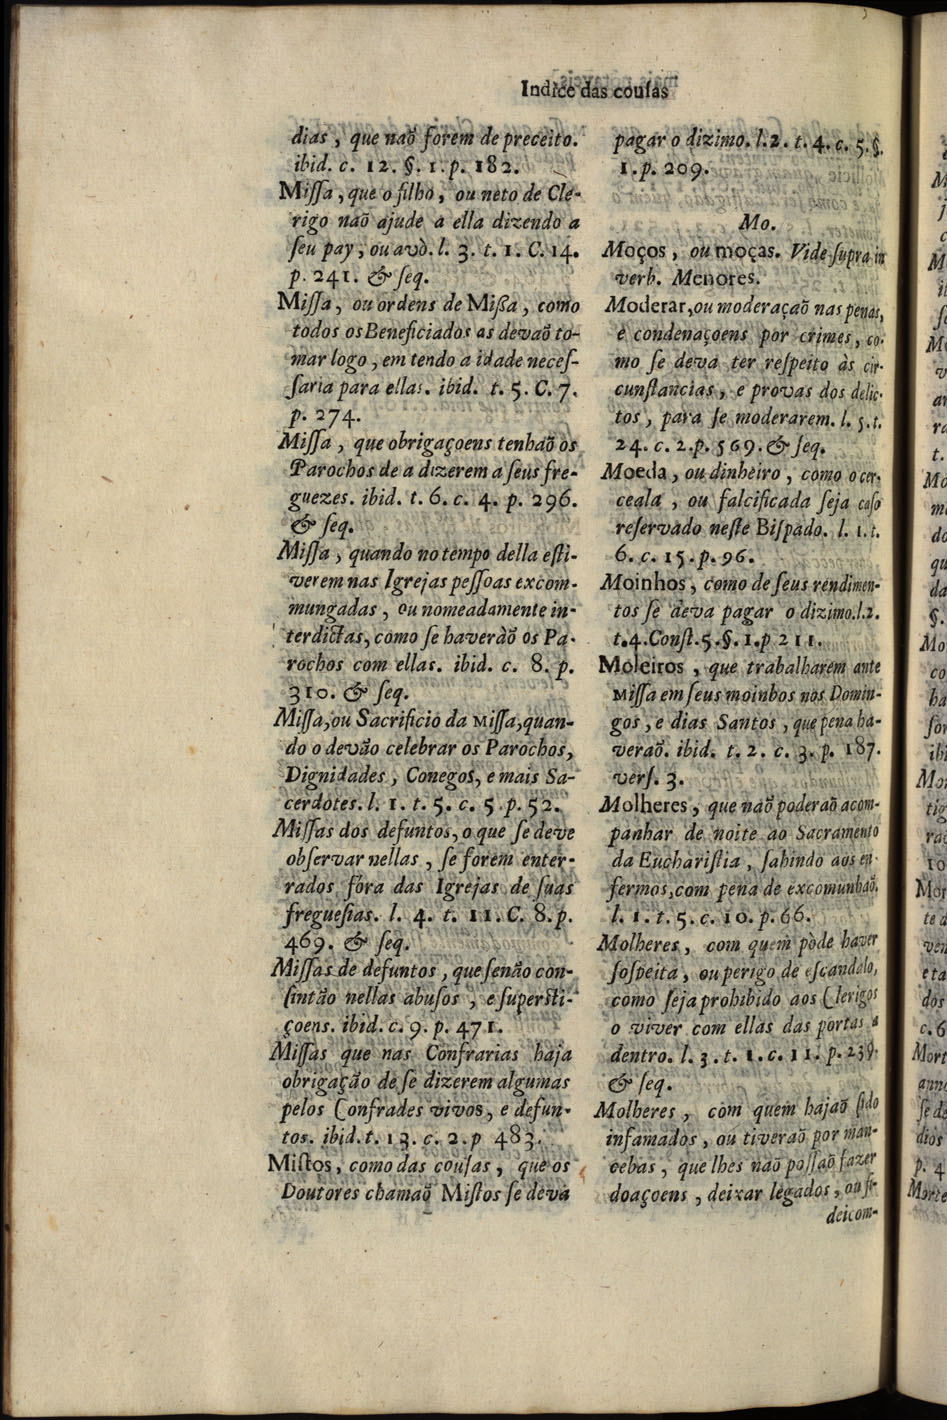 Indice das couſas
dias, que naõ forem de preceito.
ibid. c. 12. §. 1. p. 182.
Miſſa, que o filho, ou neto de Cle-
rigo naõ ajude a ella dizendo a
ſeu pay, ou avò. l. 3. t. 1. C. 14.
p. 241. & ſeq.
Miſſa, ou ordens de Miſſa, como
todos os Beneficiados as devaõ to-
mar logo, em tendo a idade neceſ-
ſaria para ellas. ibid. t. 5. C. 7.
p. 274.
Miſſa, que obrigaçoens tenhaõ os
Parochos de a dizerem a ſeus fre-
guezes. ibid. t. 6. c. 4. p. 296.
& ſeq.
Miſſa, quando no tempo della eſti-
verem nas Igrejas peſſoas excom-
mungadas, ou nomeadamente in-
terdictas, como ſe haveràõ os Pa-
rochos com ellas. ibid. c. 8. p.
310. & ſeq.
Miſſa, ou Sacrificio da Miſſa, quan-
do o devão celebrar os Parochos,
Dignidades, Conegos, e mais Sa-
cerdotes. l. 1. t. 5. c. 5. p. 52.
Miſſas dos defuntos, o que ſe deve
obſervar nellas, ſe forem enter-
rados fóra das Igrejas de ſuas
fregueſias. l. 4. t. 11. C. 8. p.
469. & ſeq.
Miſſas de defuntos, que ſenão con-
ſintão nellas abuſos, e ſuperſti-
çoens. ibid. c. 9. p. 471.
Miſſas que nas Confrarias haja
obrigação de ſe dizerem algumas
pelos Confrades vivos, e defun-
tos. ibid. t. 13. c. 2. p 483.
Miſtos, como das couſas, que os
Doutores chamaõ Miſtos ſe deva
pagar o dizimo. l. 2. t. 4. c. 5. §.
1. p. 209.
Mo.
Moços, ou moças. Vide ſupra in
verb. Menores.
Moderar, ou moderaçaõ nas penas,
e condenaçoens por crimes, co-
mo ſe deva ter reſpeito às cir-
cunſtancias, e provas dos delic-
tos, para ſe moderarem. l. 5. t.
24. c. 2. p. 569. & ſeq.
Moeda, ou dinheiro, como o cer-
ceala, ou falcificada ſeja caſo
reſervado neſte Biſpado. l. 1. t.
6. c. 15. p. 96.
Moinhos, como de ſeus rendimen-
tos ſe deva pagar o dizimo. l. 2.
t. 4. Conſt. 5. §. 1. p 211.
Moleiros, que trabalharem ante
Miſſa em ſeus moinhos nos Domin-
gos, e dias Santos, que pena ha-
veraõ. ibid. t. 2. c. 3. p. 187.
verſ. 3.
Molheres, que naõ poderaõ acom-
panhar de noite ao Sacramento
da Euchariſtia, ſahindo aos en-
fermos, com pena de excomunhaõ.
l. 1. t. 5. c. 10. p. 66.
Molheres, com quem pòde haver
ſoſpeita, ou perigo de eſcandalo,
como ſeja prohibido aos Clerigos
o viver com ellas das portas a
dentro. l. 3. t. 1. c. 11. p. 239.
& ſeq.
Molheres, com quem hajaõ ſido
infamados, ou tiveraõ por man-
cebas, que lhes naõ poſſaõ fazer
doaçoens, deixar legados, ou fi-
deicom-